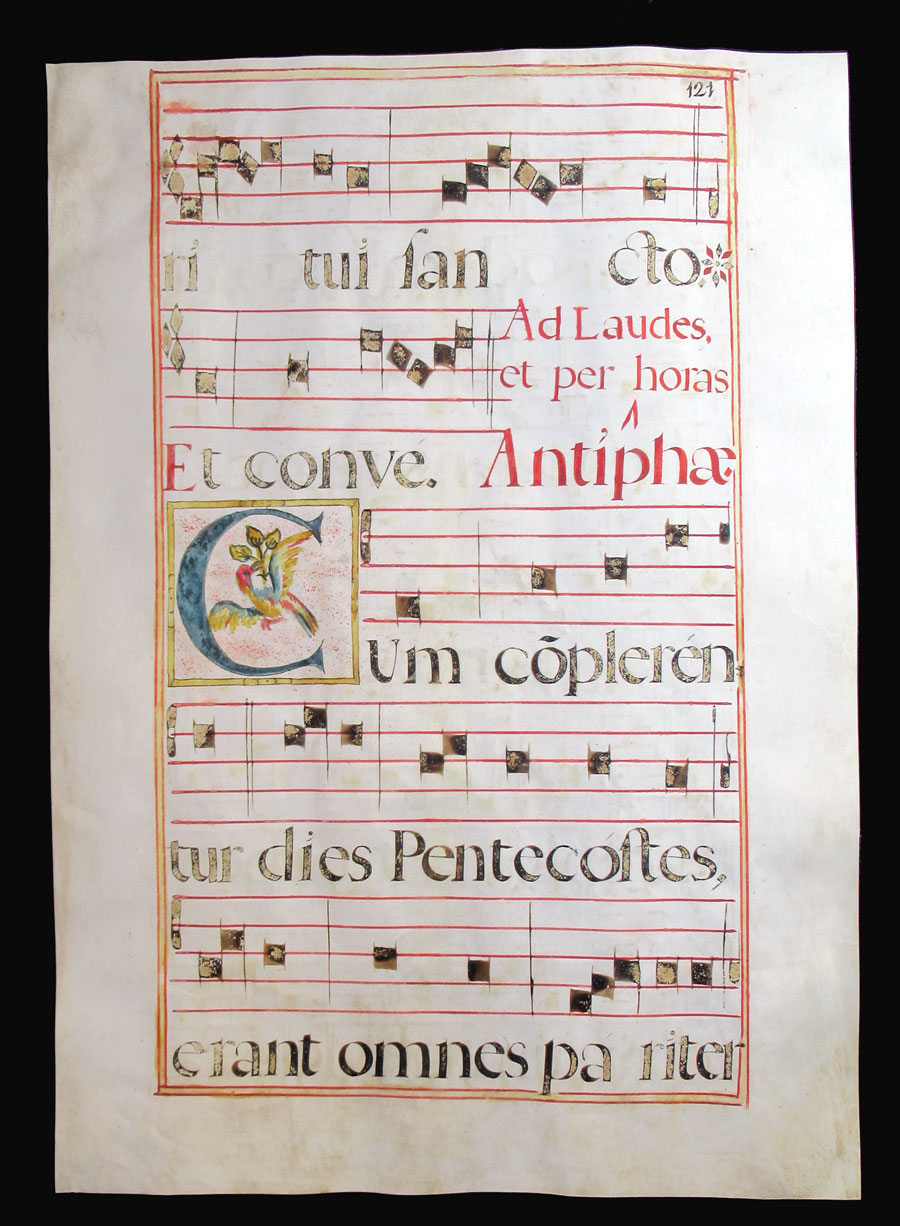 121
ri tui ſan cto
Ad Laudes,
et per horas
Et convé. Antiphæ
CUm cõplerén
tur dies Pentecoſtes,
erant omnes pa riter